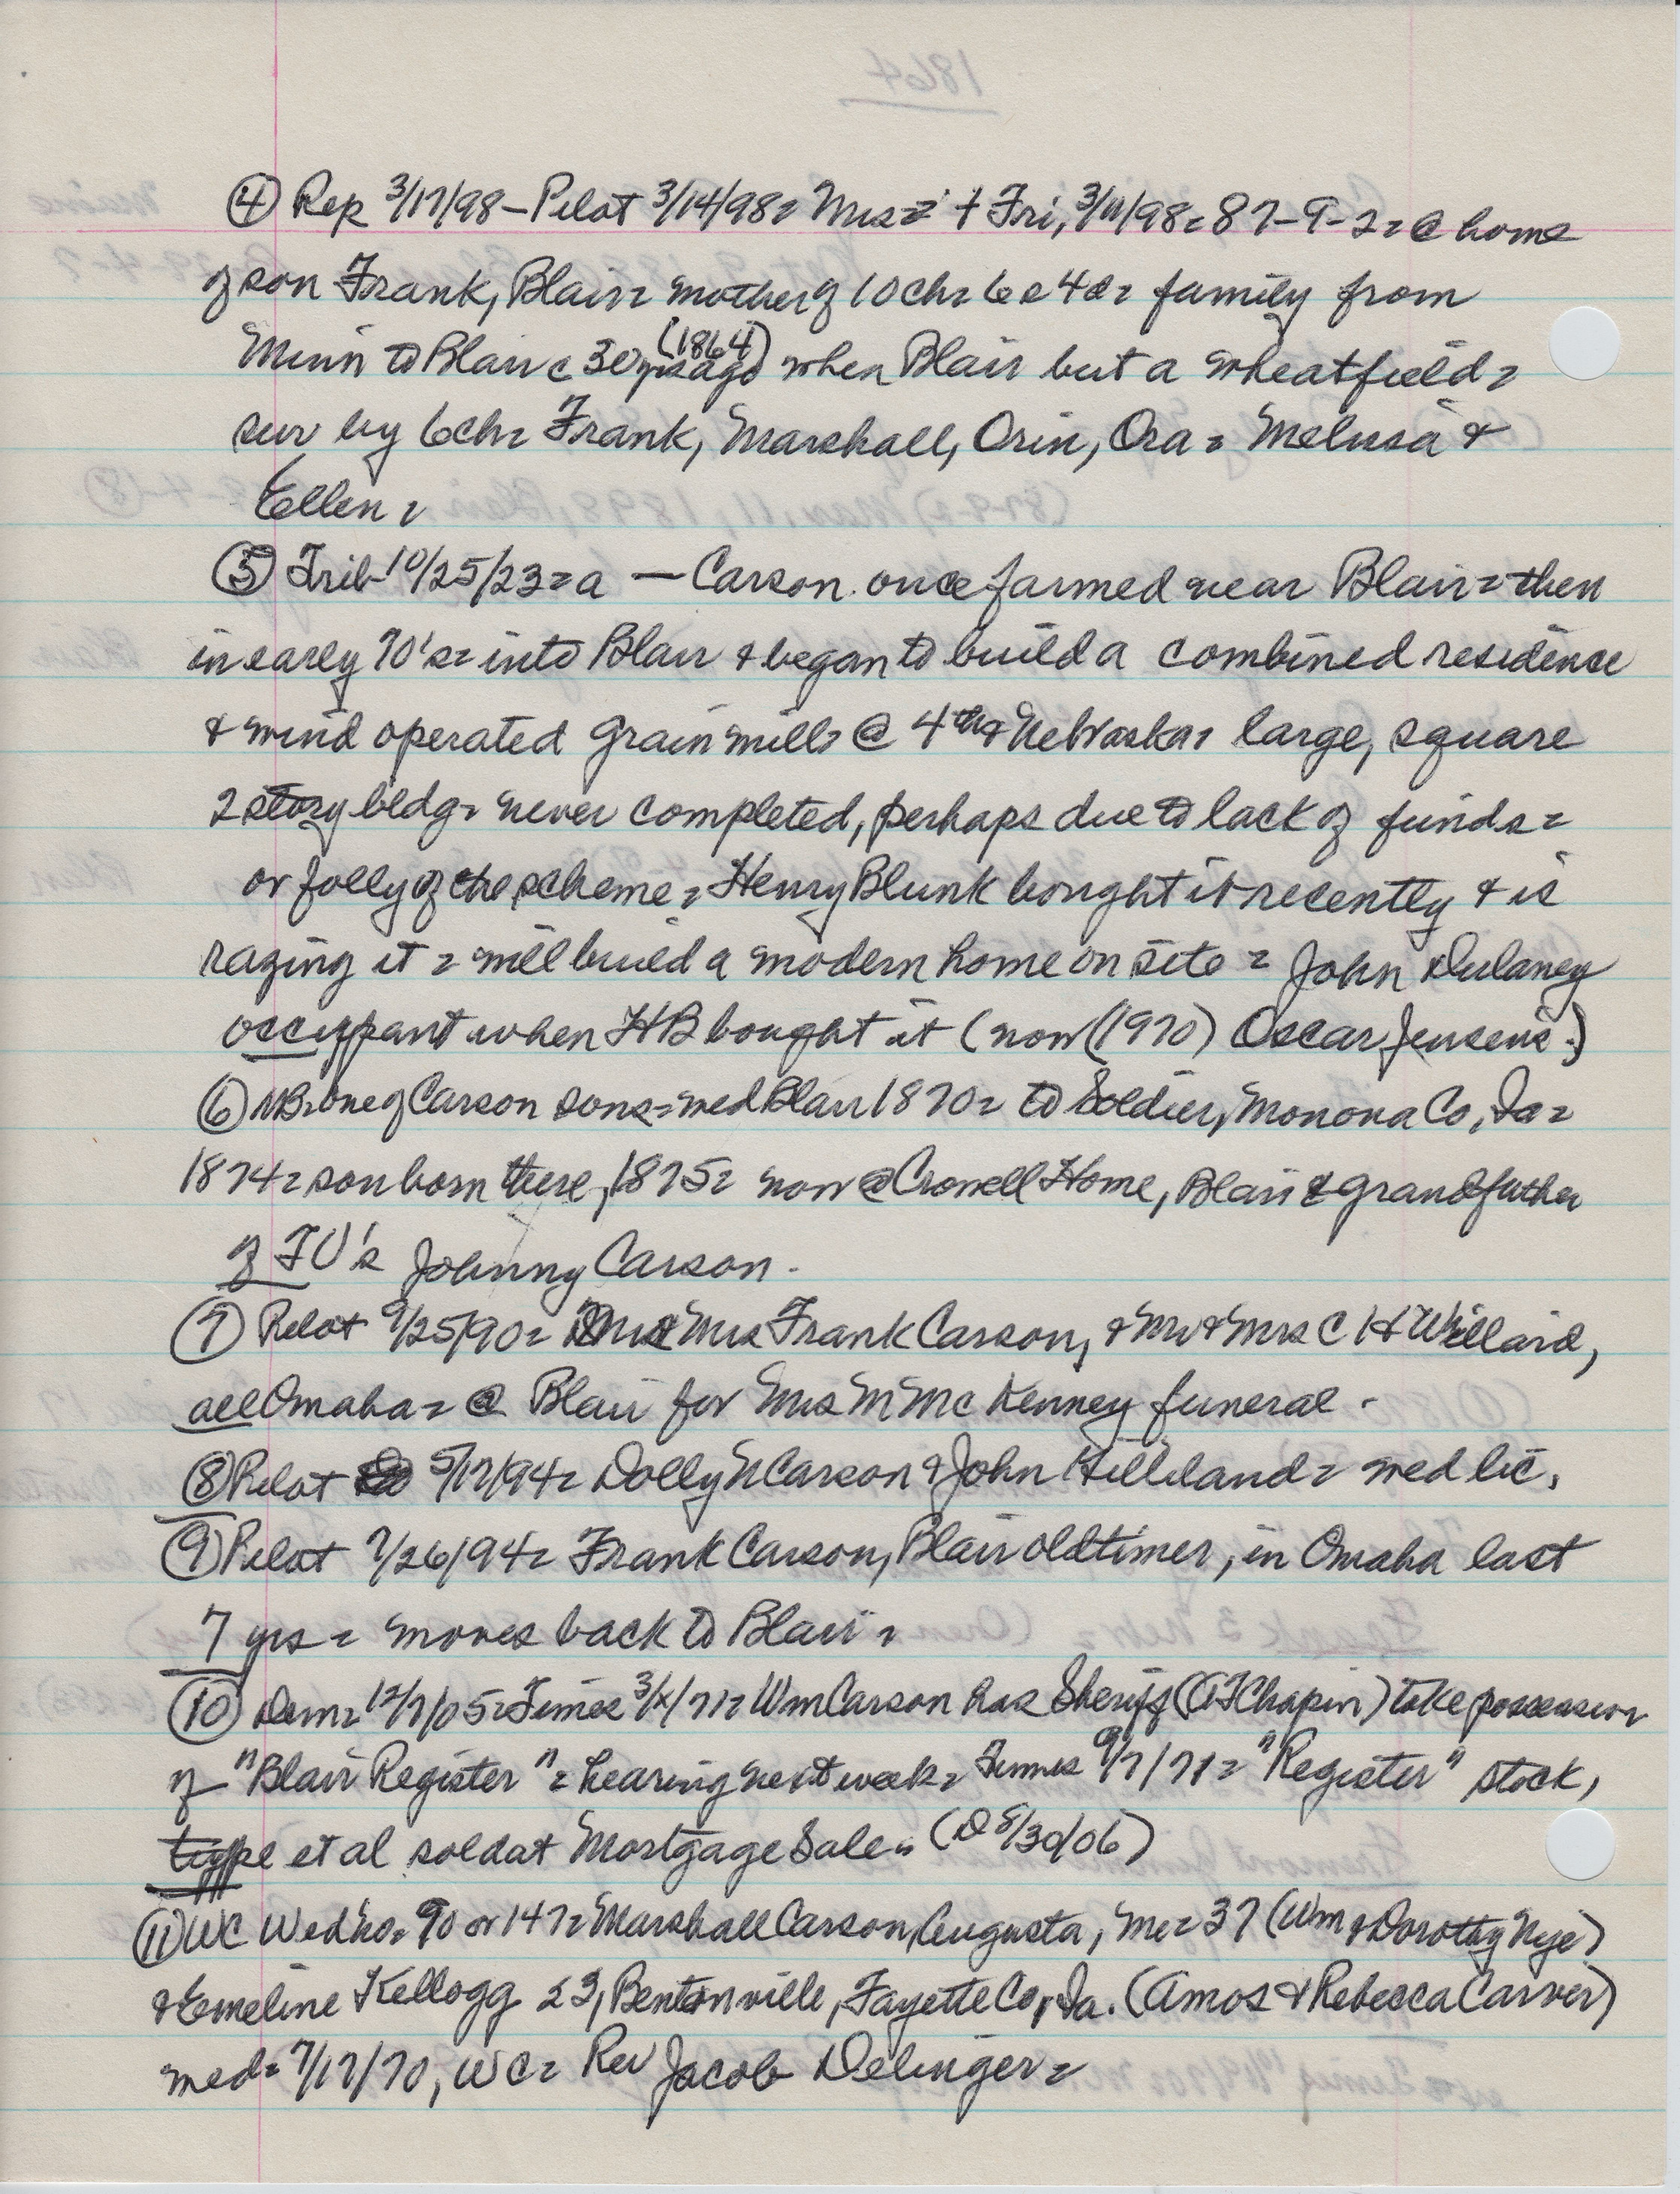 ④ Rep 3/17/98 – Pilot 3/14/98 = Mrs = + Fri, 3/11/98 = 87-9-2 = @ home
of son Frank, Blair = mother of 10 ch = 6s 4d = family from
Minn to Blair c 30 yrs ago (1864) when Blair but a wheatfield =
sur by 6 ch = Frank, Marshall, Orin, Ora = Melusa &
Ellen =
⑤ Trib 10/25/23 = a — Carson once farmed near Blair = then
in early 70's = into Blair & began to build a combined residence
& wind operated grain mill = @ 4th & Nebraska = large, square
2 story bldg = never completed, perhaps due to lack of funds =
or folly of the scheme = Henry Blunk bought it recently & is
razing it = will build a modern home on site = John Dulaney
occupant when HB bought it (now (1970) Oscar Jensens.)
⑥ MB = one of Carson sons = wed Blair 1870 = to Soldier, Monona Co, Ia =
1874 = son born there, 1875 = now @ Crowell Home, Blair & grandfather
of TV's Johnny Carson.
⑦ Pilot 9/25/90 = Mr & Mrs Frank Carson, & Mr & Mrs C H Willard,
all Omaha = @ Blair for Mrs M McKenney funeral.
⑧ Pilot 5/17/94 = Dolly N Carson & John Hilliland = wed lic.
⑨ Pilot 7/26/94 = Frank Carson, Blair oldtimer, in Omaha last
7 yrs = moves back to Blair =
⑩ Dem = 12/7/05 = Times 3/x/71 = Wm Carson has Sheriff (AT Chapin) take possession
of "Blair Register" = hearing next week = Times 9/7/71 = "Register" stock,
type et al sold at Mortgage Sale = (D 8/30/06)
⑪ WC Wed no. 90 or 147 = Marshall Carson, Augusta, Me = 37 (Wm & Dorothy Nye)
& Emeline Kellogg 23, Bentonville, Fayette Co, Ia. (Amos & Rebecca Carver)
wed = 7/17/70, WC = Rev Jacob Delinger =